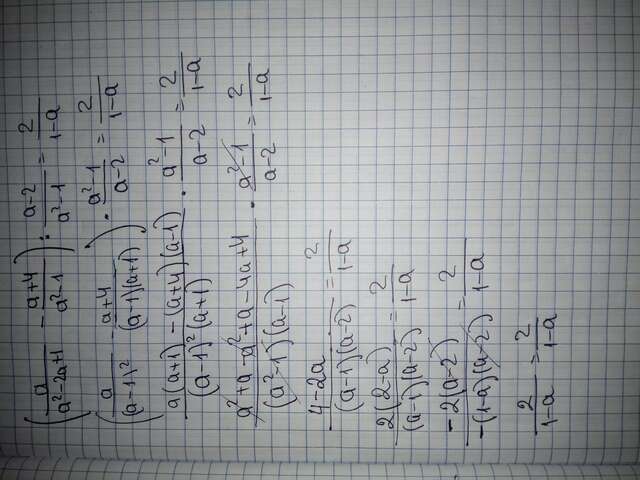 (a/(a²-2a+1) - (a+4)/(a²-1)) : (a-2)/(a²-1) = 2/(1-a)
(a/(a-1)² - (a+4)/((a-1)(a+1))) · (a²-1)/(a-2) = 2/(1-a)
(a(a+1)-(a+4)(a-1))/((a-1)²(a+1)) · (a²-1)/(a-2) = 2/(1-a)
(a²+a-a²+a-4a+4)/((a²-1)(a-1)) · (a²-1)/(a-2) = 2/(1-a)
(4-2a)/((a-1)(a-2)) = 2/(1-a)
2(2-a)/((a-1)(a-2)) = 2/(1-a)
-2(a-2)/(-(1-a)(a-2)) = 2/(1-a)
2/(1-a) = 2/(1-a)